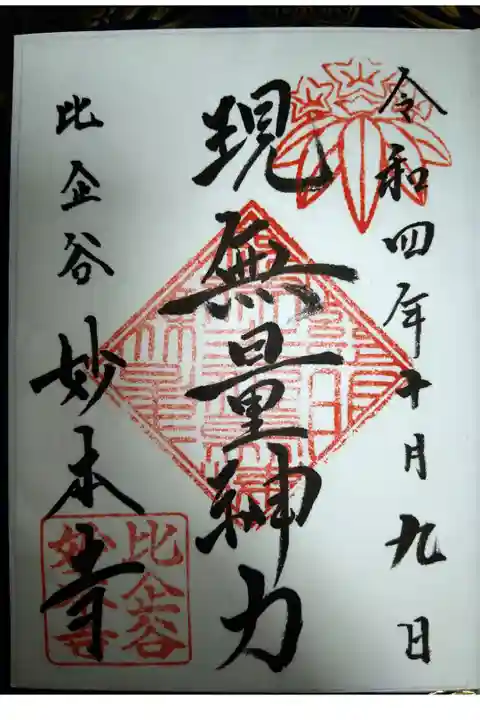 令和四年十月九日
現無量神力
比企谷 妙本寺
比企谷
妙本寺